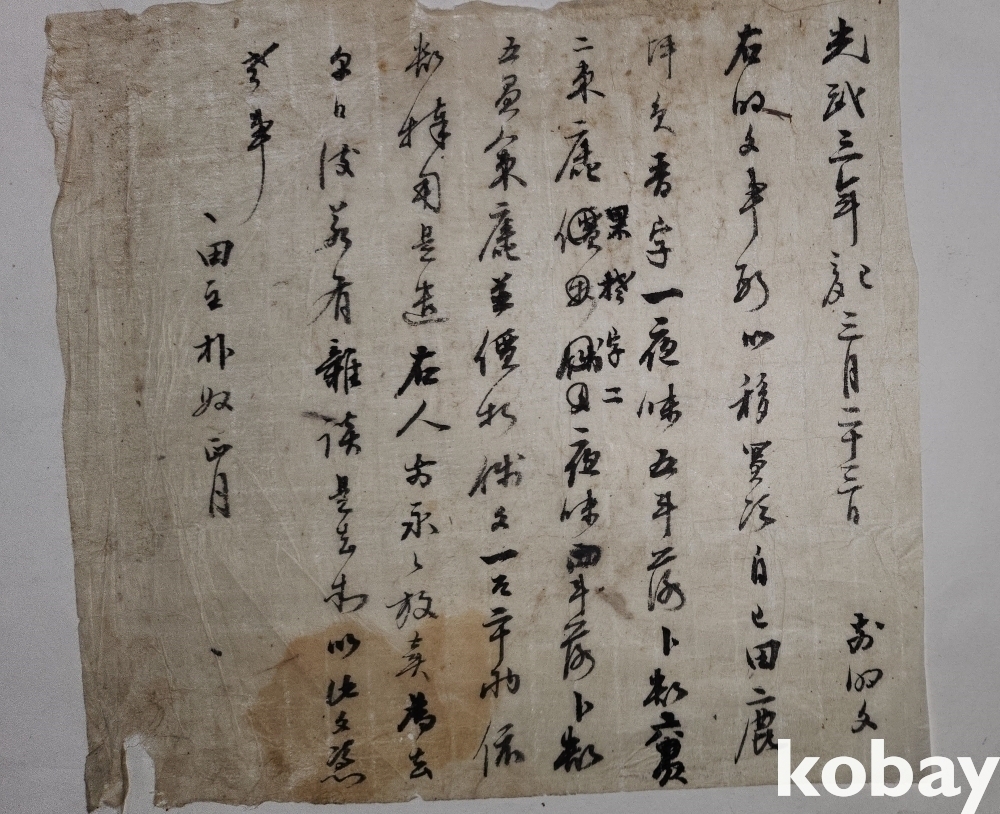 光武三年己亥三月二十三日 前明文
右明文事段以移買次自己田庫
坪員字一夜味五斗落卜數六負
果 字二
二束庫 夜味四斗落卜數
五負八束庫並價折錢文一百二十兩依
數捧用是遣右人前永々放賣爲去
乎日後若有雜談是去等以此文憑
考事
田主朴奴正月
kobay